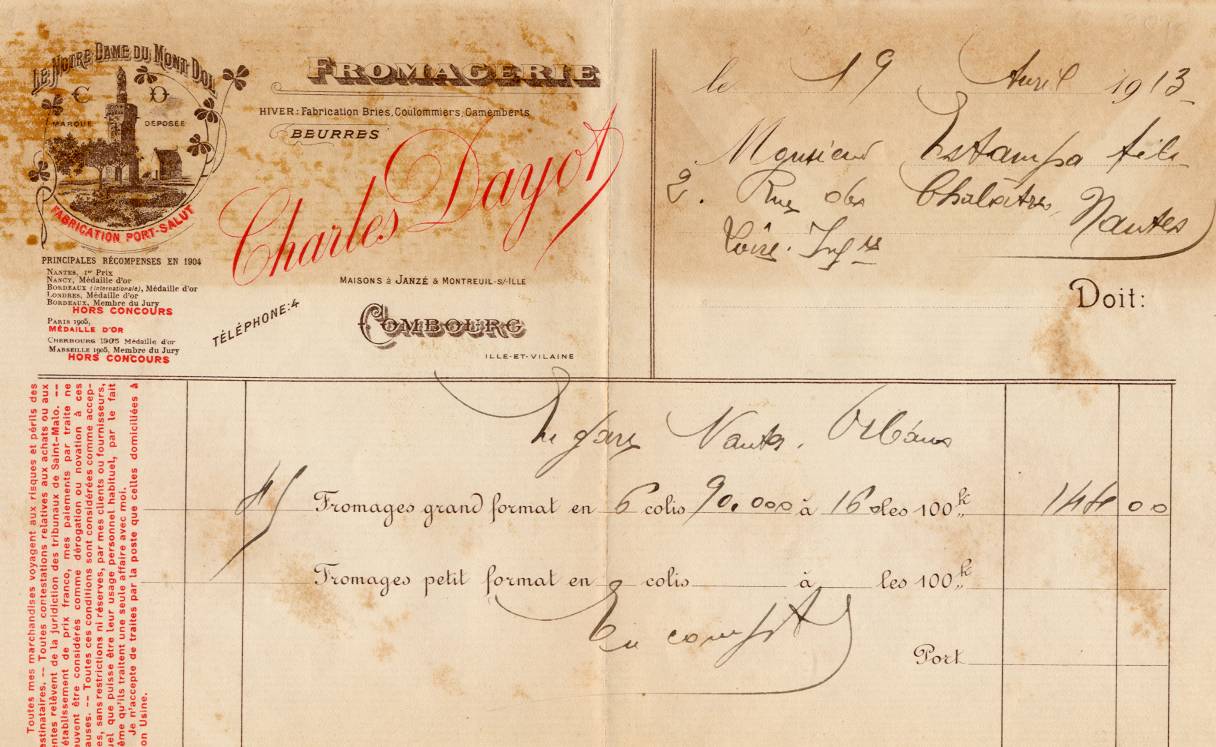 LE NOTRE DAME DU MONT DOL
C D
MARQUE DÉPOSÉE
FABRICATION PORT-SALUT
PRINCIPALES RÉCOMPENSES EN 1904
NANTES, 1er Prix
NANCY, Médaille d'or
BORDEAUX (internationale), Médaille d'or
LONDRES, Médaille d'or
BORDEAUX, Membre du Jury
HORS CONCOURS
PARIS 1905,
MÉDAILLE D'OR
CHERBOURG 1905 Médaille d'or
MARSEILLE 1905, Membre du Jury
HORS CONCOURS
FROMAGERIE
HIVER: Fabrication Bries, Coulommiers, Camemberts
BEURRES
Charles Dayot
MAISONS à JANZÉ & MONTREUIL-S/-ILLE
TÉLÉPHONE: 4
COMBOURG
ILLE-ET-VILAINE
le 19 Avril 1913
Monsieur Estampa fils
2. Rue des Chalâtres, Nantes
Loire-Infre
Doit:
Nantes. Orléans
45 Fromages grand format en 6 colis 90.000 à 160 les 100 k 144 00
Fromages petit format en colis à les 100 k
En compte
Port
Toutes mes marchandises voyagent aux risques et périls des
estinataires. -- Toutes contestations relatives aux achats ou aux
entes relèvent de la juridiction des tribunaux de Saint-Malo. --
établissement de prix franco, mes paiements par traite ne
euvent être considérés comme dérogation ou novation à ces
auses. -- Toutes ces conditions sont considérées comme accep-
es, sans restrictions ni réserves, par mes clients ou fournisseurs,
uel que puisse être leur usage personnel habituel, par le fait
ême qu'ils traitent une seule affaire avec moi.
Je n'accepte de traites par la poste que celles domiciliées à
on Usine.